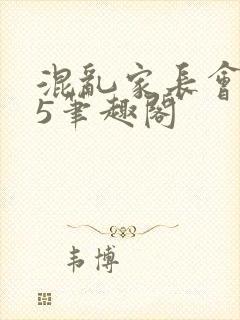 混亂家長會
5筆趣閣
韦博